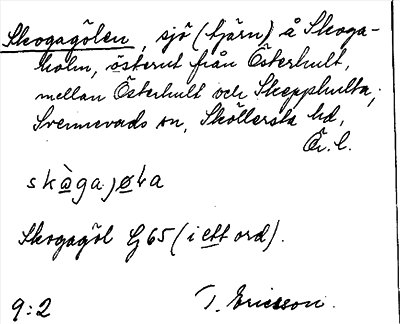 Skogagölen, sjö (tjärn) å Skoga-
holm, österut från Österhult,
mellan Österhult och Skepphulta,
Svennevads sn, Sköllersta hd,
Ör. l.
Skogagöl G 65 (i ett ord).
9:2 T. Ericsson.